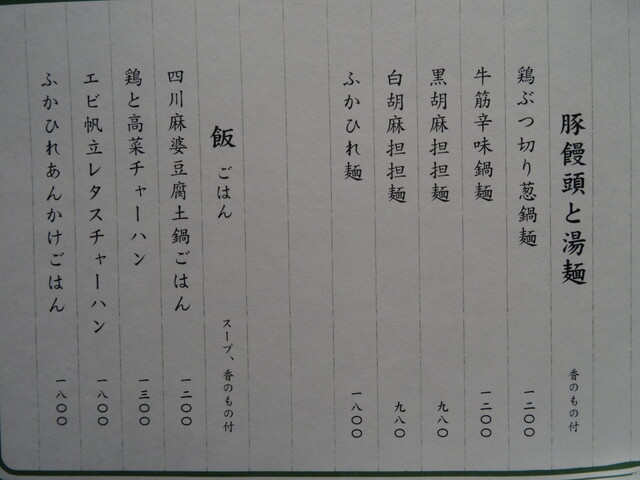 豚饅頭と湯麺 香のもの付
鶏ぶつ切り葱鍋麺 一二〇〇
牛筋辛味鍋麺 一二〇〇
黒胡麻担担麺 九八〇
白胡麻担担麺 九八〇
ふかひれ麺 一八〇〇
飯 ごはん スープ、香のもの付
四川麻婆豆腐土鍋ごはん 一二〇〇
鶏と高菜チャーハン 一三〇〇
エビ帆立レタスチャーハン 一八〇〇
ふかひれあんかけごはん 一八〇〇